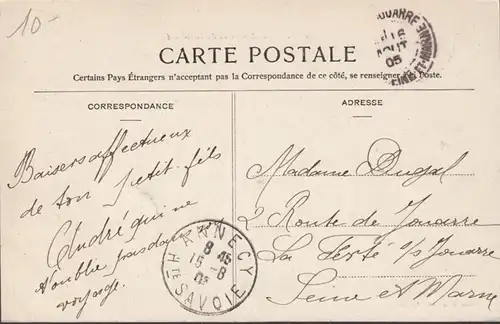 10-
CARTE POSTALE
Certains Pays Étrangers n'acceptant pas la Correspondance de ce côté, se renseigner Poste.
CORRESPONDANCE
ADRESSE
Baisers affectueux
de ton petit-fils
André qui ne
t'oublie pas dans
voyage.
Madame Dugal
2 Route de Jouarre
La Ferté s/s Jouarre
Seine et Marne
OUARRE
16
AOUT
05
SEINE-ET-MARNE
ANNECY
8 45
15 -8
05
HTE SAVOIE